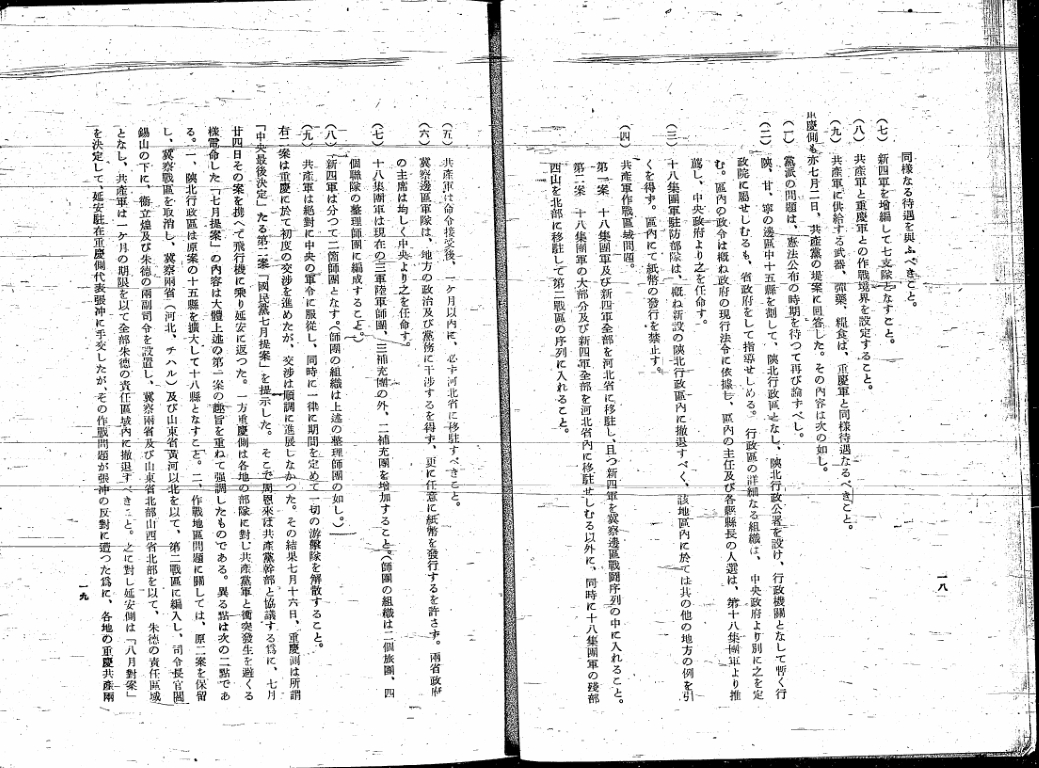 同樣なる待遇を與ふべきこと。
(七) 新四軍を增編して七支隊となすこと。
(八) 共產軍と重慶軍との作戰境界を設定すること。
(九) 共產軍に供給する武器、彈藥、糧食は、重慶軍と同樣待遇なるべきこと。
重慶側も亦七月二日、共產黨の提案に回答した。その內容は次の如し。
(一) 黨派の問題は、憲法公布の時期を待つて再び論ずべし。
(二) 陝、甘、寧の邊區中十五縣を劃して、陝北行政區となし、陝北行政公署を設け、行政機關となして暫く行
政院に屬せしむるも、省政府をして指導せしめる。行政區の詳細なる組織は、中央政府より別に之を定
む。區內の政令は概ね政府の現行法令に依據し、區內の主任及び各縣縣長の人選は、第十八集團軍より推
薦し、中央政府より之を任命す。
(三) 十八集團軍駐防部隊は、概ね新設の陝北行政區內に撤退すべく、該地區內に於ては其の他の地方の例を引
くを得ず。區內にて紙幣の發行を禁止す。
(四) 共產軍作戰區域問題。
第一案 十八集團軍及び新四軍全部を河北省に移駐し、且つ新四軍を冀察邊區戰鬪序列の中に入れること。
第二案 十八集團軍の大部分及び新四軍全部を河北省內に移駐せしむる以外に、同時に十八集團軍の殘部
四山を北部に移駐して第二戰區の序列に入れること。
一八
(五) 共產軍は命令接受後、一ケ月以內に、必ず河北省に移駐すべきこと。
(六) 冀察邊區軍隊は、地方の政治及び黨務に干涉するを得ず、更に任意に紙幣を發行するを許さず。兩省政府
の主席は均しく中央より之を任命す。
(七) 十八集團軍は現在の三軍陸軍師團、三補充團の外、二補充團を增加すること。(師團の組織は二個旅團、四
個聯隊の整理師團に編成すること。)
(八) 新四軍は分つて二箇師團となす。(師團の組織は上述の整理師團の如し。)
(九) 共產軍は絕對に中央の軍令に服從し、同時に一律に期間を定めて一切の游擊隊を解散すること。
右二案は重慶に於て初度の交涉を進めたが、交涉は順調に進展しなかつた。その結果七月十六日、重慶側は所謂
「中央最後決定」たる第二案「國民黨七月提案」を提示した。そこで周恩來は共產黨幹部と協議する爲に、七月
廿四日その案を携へて飛行機に乘り延安に返つた。一方重慶側は各地の部隊に對し共產黨軍と衝突發生を避くる
樣電命した「七月提案」の內容は大體上述の第一案の趣旨を重ねて强調したものである。異る點は次の二點であ
る。一、陝北行政區は原案の十五縣を擴大して十八縣となすこと。二、作戰地區問題に關しては、原二案を保留
し、冀察戰區を取消し、冀察兩省(河北、チハル)及び山東省黃河以北を以て、第二戰區に編入し、司令長官閻
錫山の下に、衞立煌及び朱德の兩副司令を設置し、冀察兩省及び山東省北部山西省北部を以て、朱德の責任區域
となし、共產軍は一ケ月の期限を以て全部朱德の責任區域內に撤退すべきこと。之に對し延安側は「八月對案」
を決定して、延安駐在重慶側代表張冲に手交したが、その作戰問題が張冲の反對に遭つた爲に、各地の重慶共產兩
一九